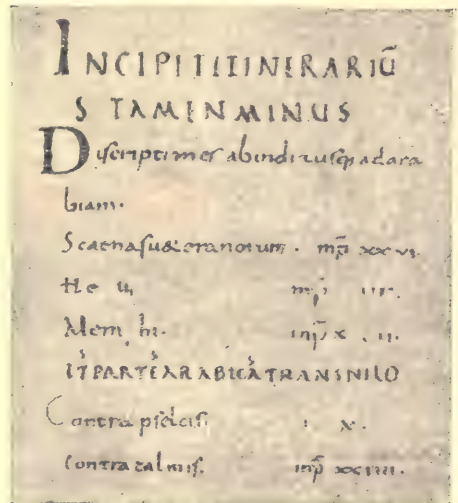 INCIPITITINERARIŪ
S TAMEN MINUS
Discriptimes abindi usq; adara
biam.
Scaenasueteranorum. mp̄ xxvi.
He u mp̄
Mem hi. mp̄ x
IT PARTE ARABICA TRANSNILO
Contra pselcis. x.
Contra talmis. mp̄ xxiiii.